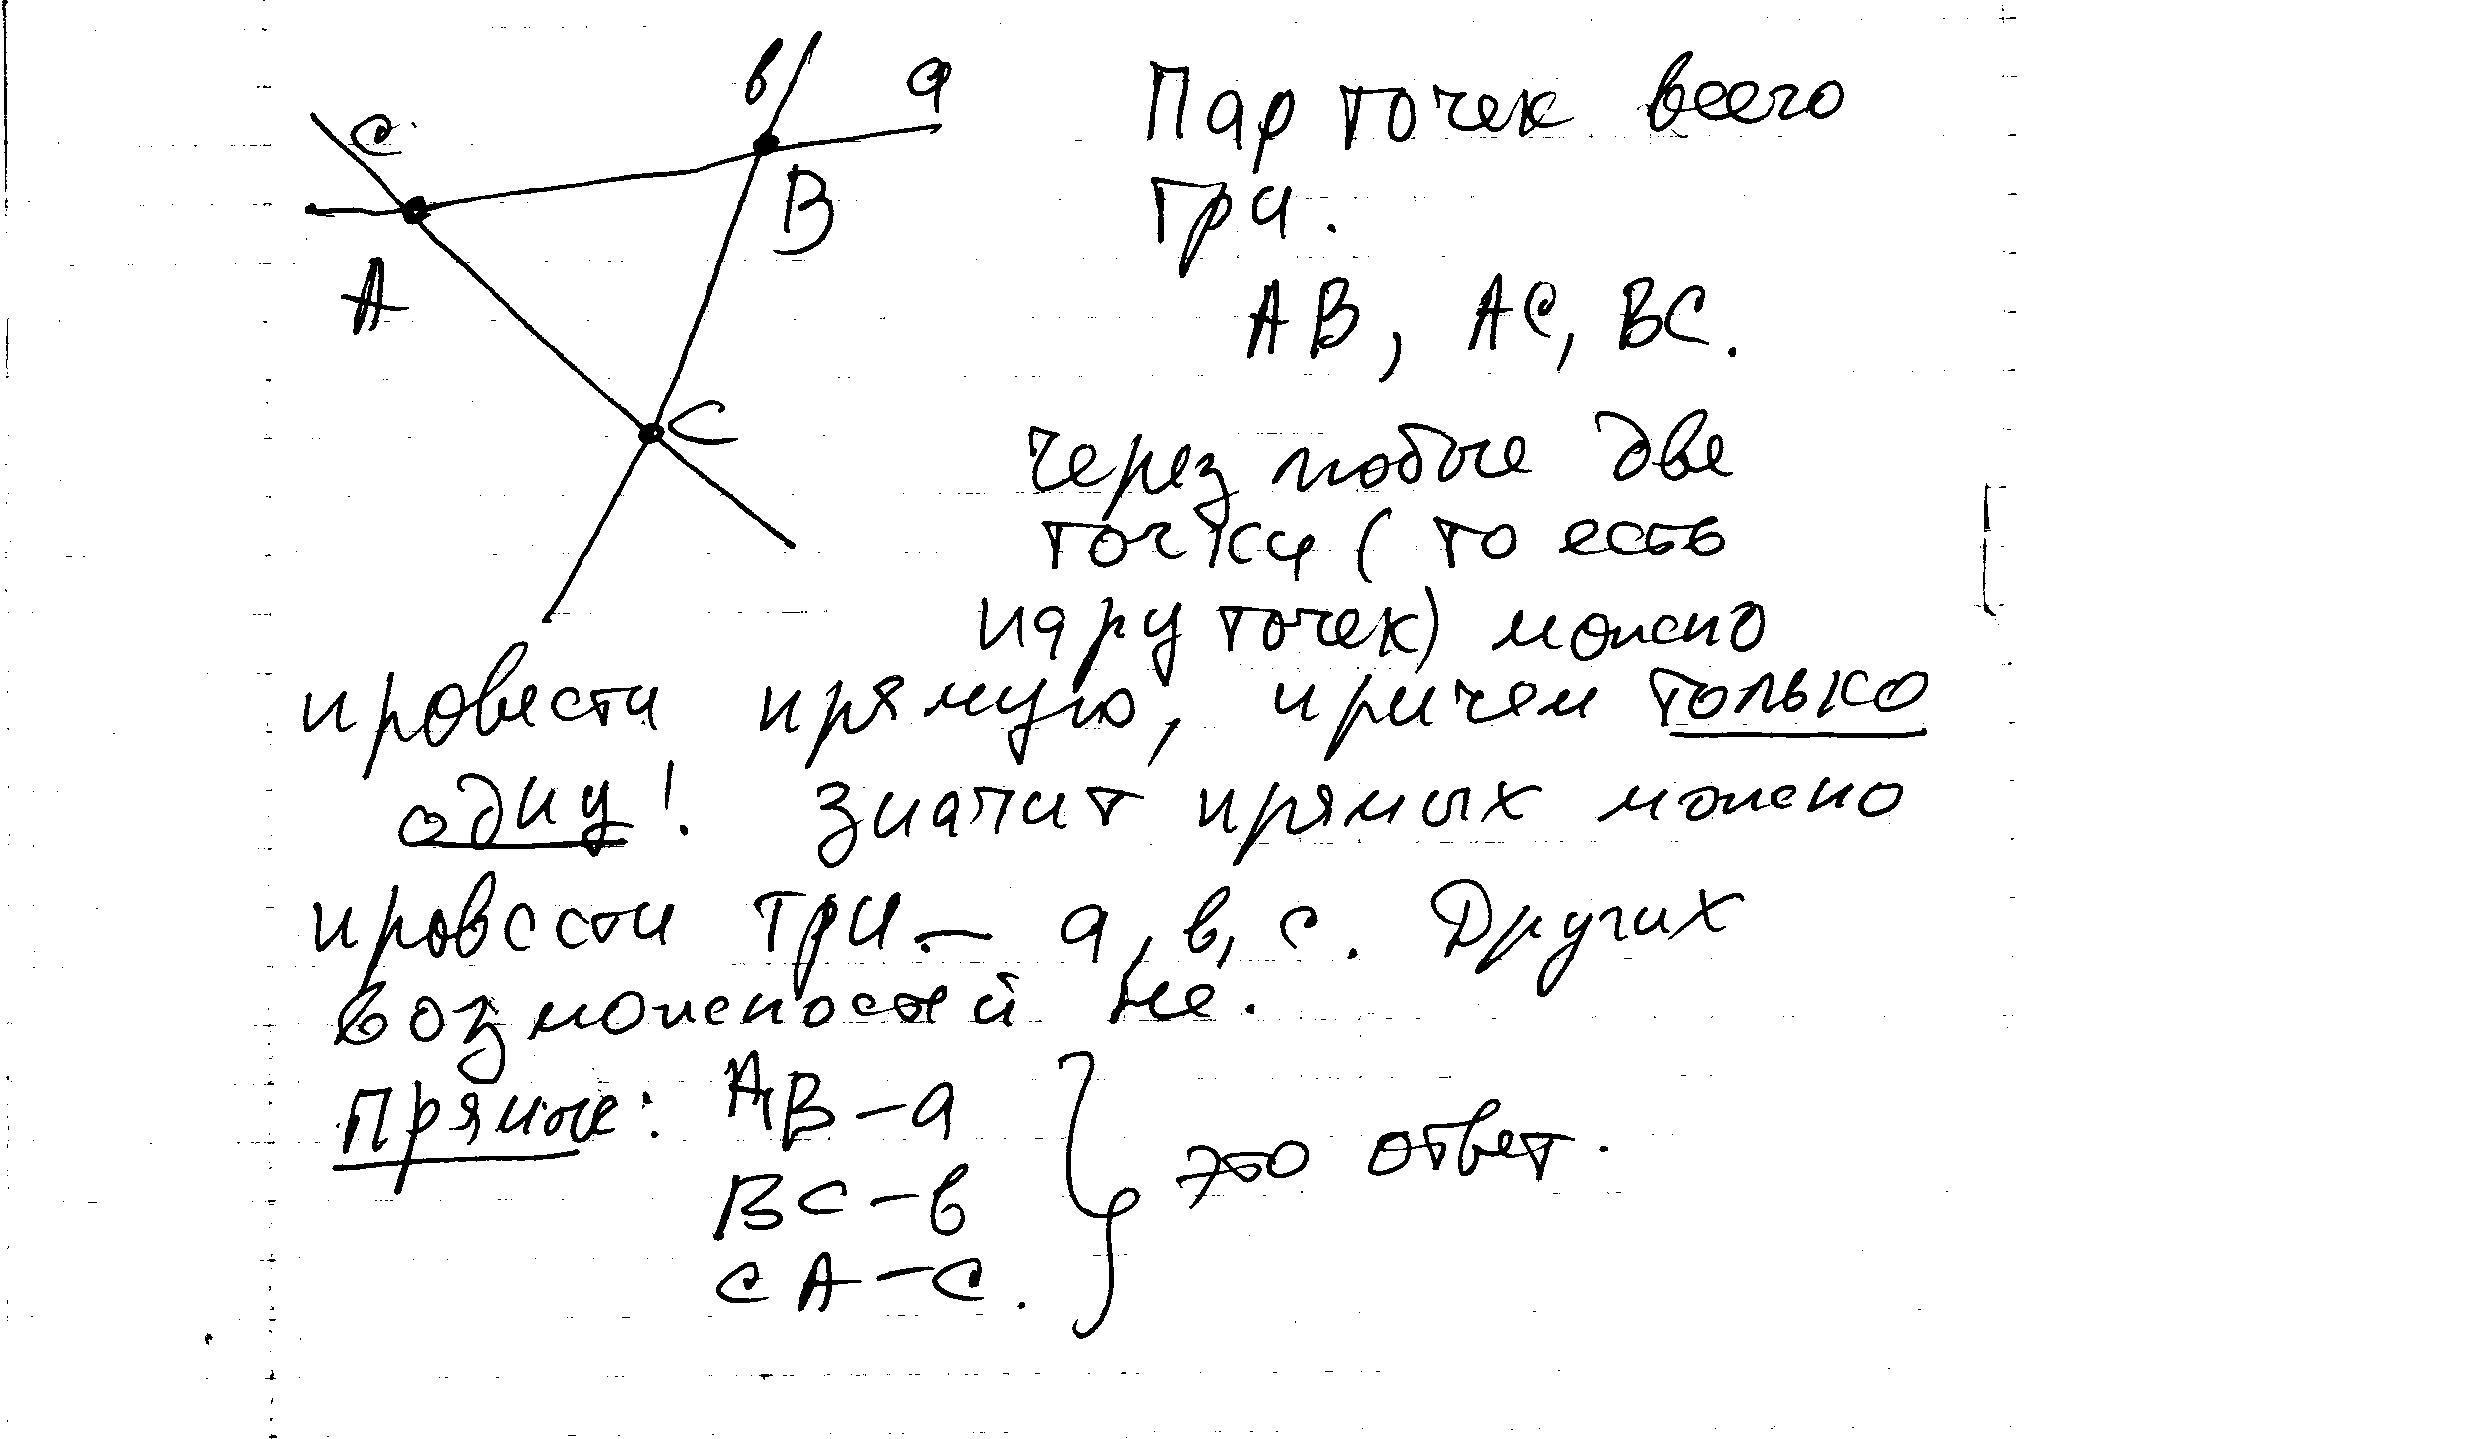 в а
с
B
A
C
Пар точек всего
три.
AB, AC, BC.
через любые две
точки (то есть
пару точек) можно
провести прямую, причем только
одну! значит прямых можно
провести три – а, в, с. Других
возможностей не.
Прямые: AB – а
BC – в
CA – с.
это ответ.